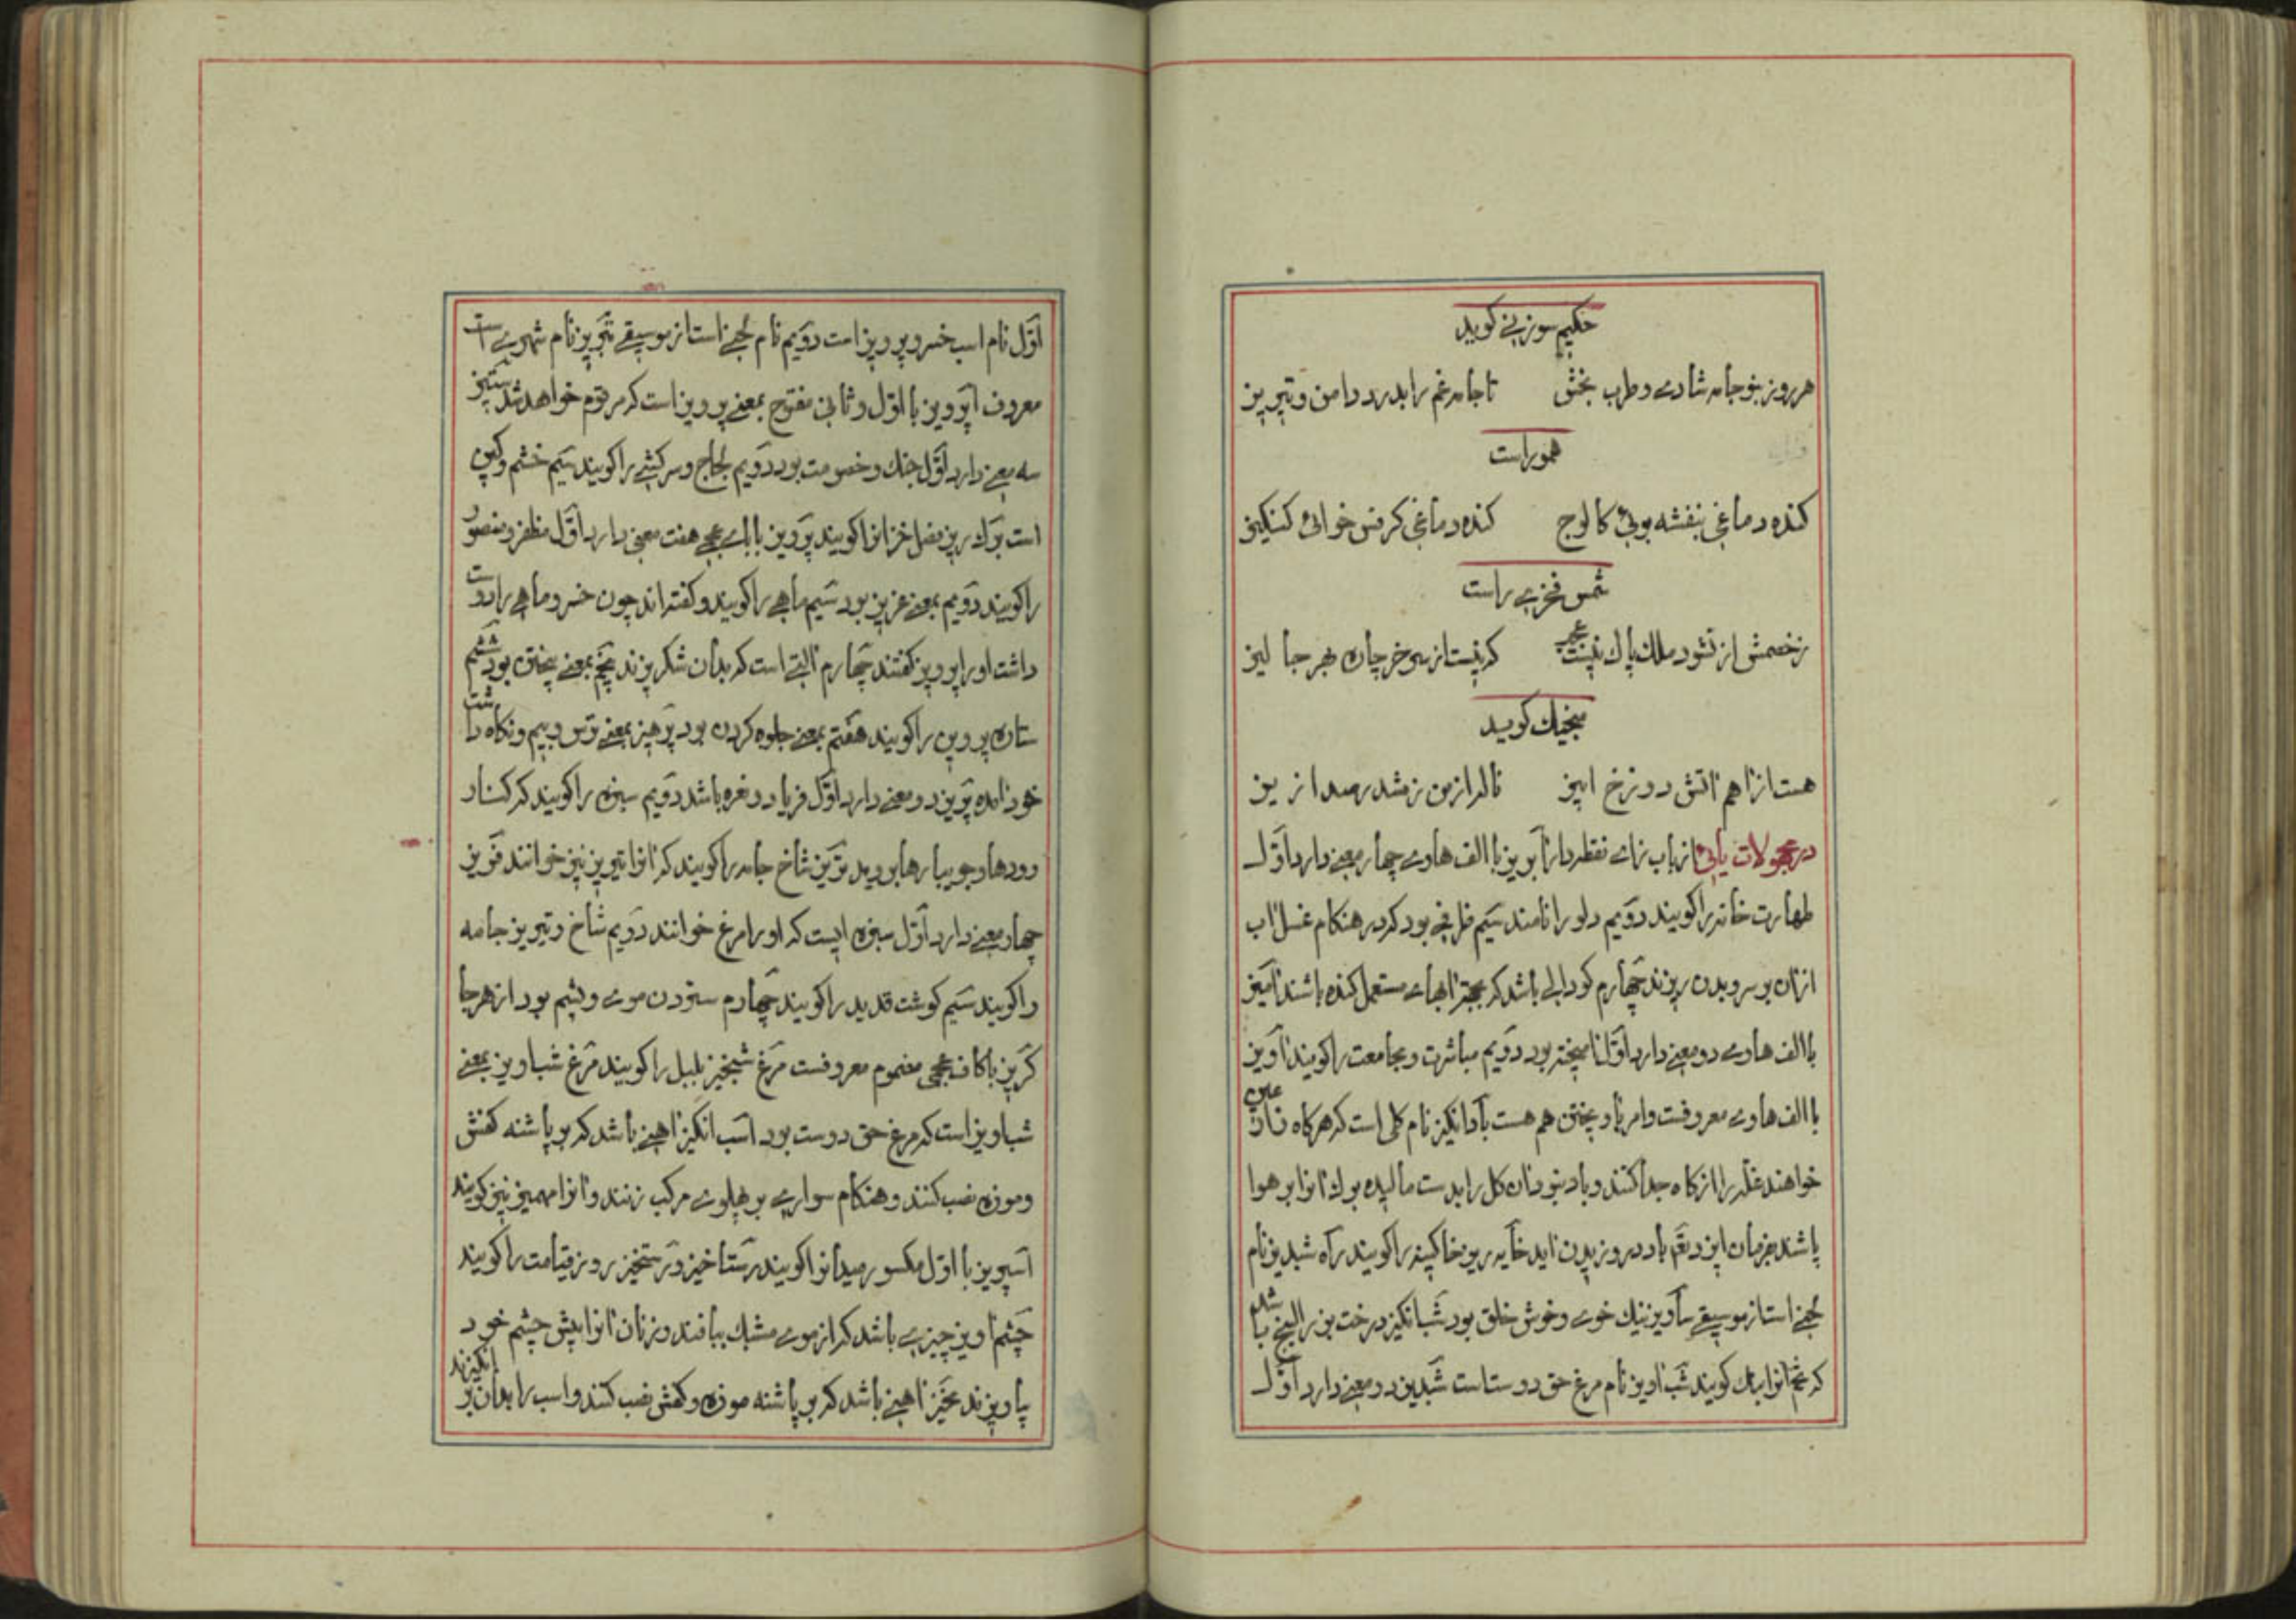 حکیم سوزنی کوید
هر روز بنو جامه شادی و طرب بخش تا جامه غم را بدرد دامن و تیریز
هموراست
کنده دماغی بنفشه بوئی کالوج کنده دماغی کرفس خوائی کنکیز
شمس فخری راست
ز خصمش ار نشود ملک پاک نیست عجب که نیست از سر خرچاره بهر جا لیز
منجیک کوید
هست از آهم آتش دوزخ ابیز ناله از من ز مشد رمیدا زیز
در مجهولات یائی از باب زای نقطه دار آبریز با الف هاوی چهار معنی دارد اول
طهارت خانه را کویند دویم دلو را نامند سیم ظرفی بود که در هنکام غسل آب
ازان بر سر و بدن ریزند چهارم کودالی باشد که بجهة آبهای مستعمل کنده باشند آمیز
با الف هاوی دو معنی دارد اول آمیخته بود دویم مباشرت و مجامعت را کویند آویز
با الف هاوی معروفست و امر باویختن هم هست بادانکیز نام کلی است که هرکاه زارعان
خواهند غله را از کاه جدا کنند و باد نبود آن کل را بدست مالیده برک آنرا بر هوا
پاشند بفرمان ایزد تعم باد در وزیدن آید خایه ریز خاکینه را کویند راه شبدیز نام
لحنی است از موسیقی سآویز نیک خوی و خوش خلق بود شبانکیز درخت بزر البنج باشد
که تخم آنرا بنک کویند شب آویز نام مرغ حق دوست است شبدیز دو معنی دارد اول
اول نام اسب خسرو پرویز است دویم نام لحنی است از موسیقی تبریز نام شهری ست
معروف اپرویز با اول و ثانی مفتوح بمعنی پرویز است که مرقوم خواهد شد ستیز
سه معنی دارد اول جنک و خصومت بود دویم لجاج و سرکشی را کویند سیم خشم و کین
است برک ریز فصل خزانرا کویند پرویز با بای عجمی هفت معنی دارد اول مظفر و منصور
را کویند دویم بمعنی عزیز بود سیم ماهی را کویند و کفته اند چون خسرو ماهی را دوست
داشت او را پرویز کفتند چهارم آلتی است که بدان شکر بیزند پنجم بمعنی بیختن بود ششم
ستاره پروین را کویند هفتم بمعنی جلوه کردن بود پرهیز بمعنی ترس و بیم و نکاه داشت
خود آمده پریز دو معنی دارد اول فریاد و نعره باشد دویم سبزه را کویند که کنار
رودها و جویبارها بروید تریز شاخ جامه را کویند که آنرا تیریز نیز خوانند فریز
چهار معنی دارد اول سبزه ایست که او را مرغ خوانند دویم شاخ و تیریز جامه
را کویند سیم کوشت قدید را کویند چهارم ستردن موی و پشم بود از هر جا
کریز با کاف عجمی مضموم معروفست مرغ شبخیز بلبل را کویند مرغ شباویز بمعنی
شباویز است که مرغ حق دوست بود اسب انکیز آهنی باشد که بر پاشنه کفش
و موزه نصب کنند و هنکام سواری بر پهلوی مرکب زنند و آنرا مهمیز نیز کویند
اسپریز با اول مکسور میدانرا کویند رستاخیز و رستخیز روز قیامت را کویند
چشم آویز چیزی باشد که از موی مشبک ببافند و زنان آنرا پیش چشم خود
بیاویزند مخیز آهنی باشد که بر پاشنه موزه و کفش نصب کنند و اسب را بدان بر انکیزند